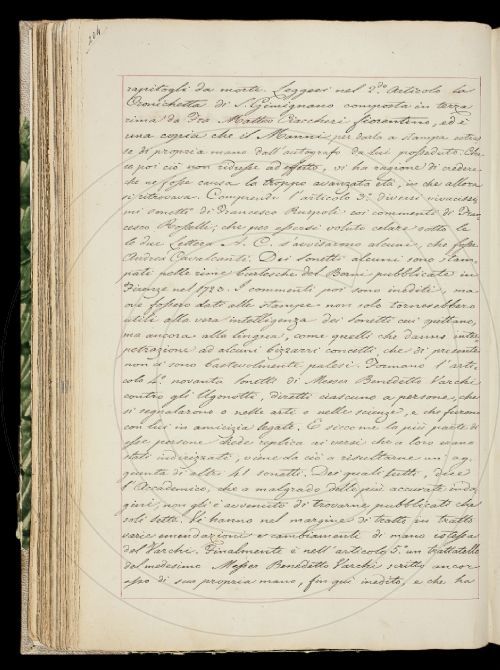 224
rapitogli da morte. Leggesi nel 2.do Articolo la
Cronichetta di S. Gimignano composta in terza
rima da Fra Matteo Ciaccheri fiorentino, ed è
una copia che il Manni per darla a stampa estras-
se di propria mano dall'autografo da lui posseduto. Che
se poi ciò non ridusse ad effetto, vi ha ragione di credere
che ne fosse causa la troppo avanzata età, in che allora
si ritrovava. Comprende l'articolo 3.o diversi vivacissi-
mi sonetti di Francesco Ruspoli coi commenti di Fran-
cesco Rosselli, che per essersi voluto celare sotto le
le due Lettere A. C. s'avvisarono alcuni, che fosse
Andrea Cavalcanti. Dei sonetti alcuni sono stam-
pati nelle rime burlesche del Berni pubblicate in
Firenze nel 1723. I commenti poi sono inediti, ma
ove fossero dati alle stampe non solo tornerebbero
utili alla vera intelligenza dei sonetti cui spettano,
ma ancora alla lingua, come quelli che danno inter-
petrazione ad alcuni bizzarri concetti, che di presente
non ci sono bastevolmente palesi. Formano l'arti-
colo 4.o novanta sonetti di Messer Benedetto Varchi
contro gli Ugonotti, diretti ciascuno a persone, che
si segnalarono o nelle arti o nelle scienze, e che furono
con lui in amicizia legate. E siccome la più parte di
esse persone diede replica ai versi che a loro erano
stati indirizzati, viene da ciò a risultarne un' ag-
giunta di altri 41 sonetti. Dei quali tutti, dice
l'Accademico, che a malgrado delle più accurate inda-
gini, non gli è avvenuto di trovarne pubblicati che
soli sette. Vi hanno nel margine di tratto in tratto
varie emendazioni e cambiamenti di mano istessa
del Varchi. Finalmente è nell'articolo 5.o un trattatello
del medesimo Messer Benedetto Varchi scritto ancor
esso di sua propria mano, fin qui inedito, e che ha